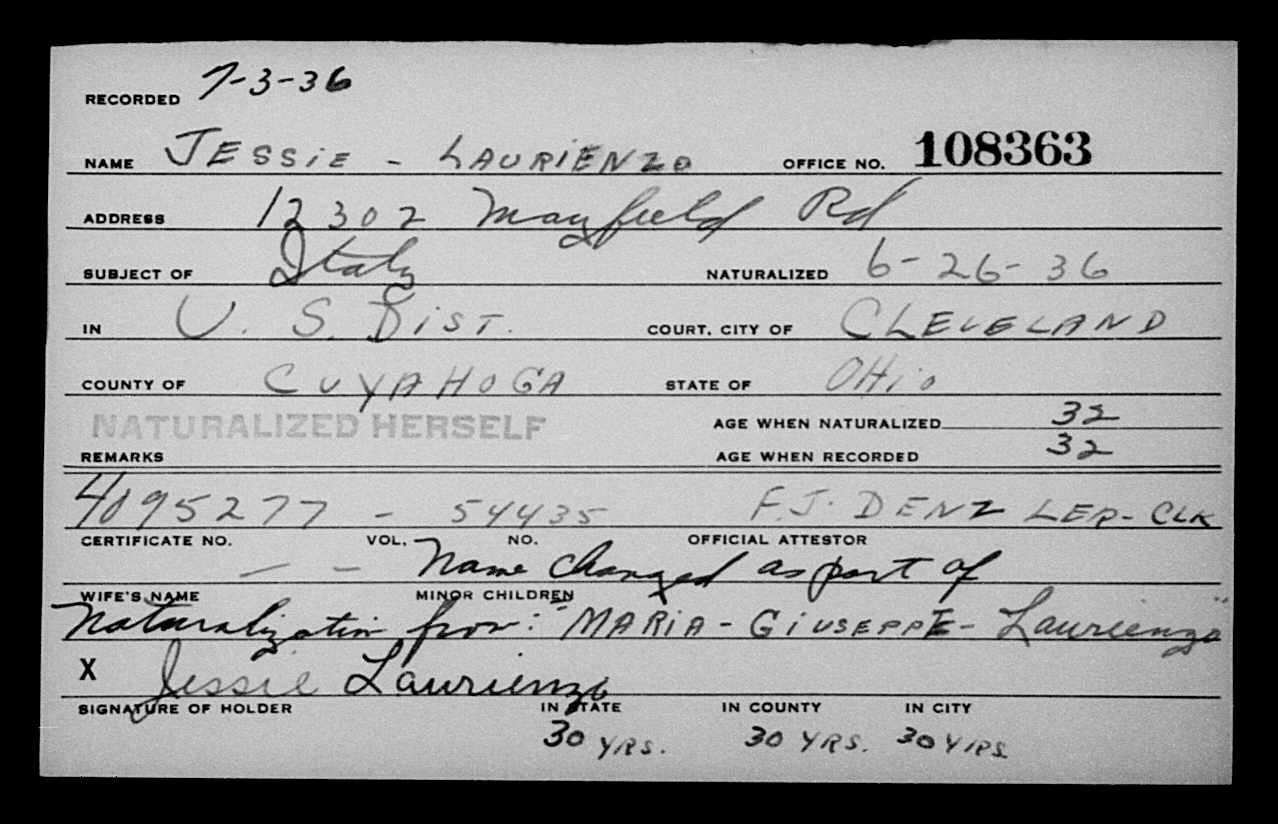 RECORDED 7-3-36
NAME JESSiE - LAURiENZO OFFICE NO. 108363
ADDRESS 12302 Mayfield Rd
SUBJECT OF Italy NATURALIZED 6-26-36
IN U. S. DiST. COURT, CITY OF CLEVELAND
COUNTY OF CUYAHOGA STATE OF OHiO
NATURALIZED HERSELF AGE WHEN NATURALIZED 32
REMARKS AGE WHEN RECORDED 32
4095277 - 54435 F.J. DENZLER - CLK
CERTIFICATE NO. VOL. NO. OFFICIAL ATTESTOR
— — Name Changed as part of
WIFE'S NAME MINOR CHILDREN
Naturalization from: "MARiA - GiUSEPPE - Laurienzo"
X Jessie Laurienzo
SIGNATURE OF HOLDER IN STATE IN COUNTY IN CITY
30 YRS. 30 YRS. 30 YRS